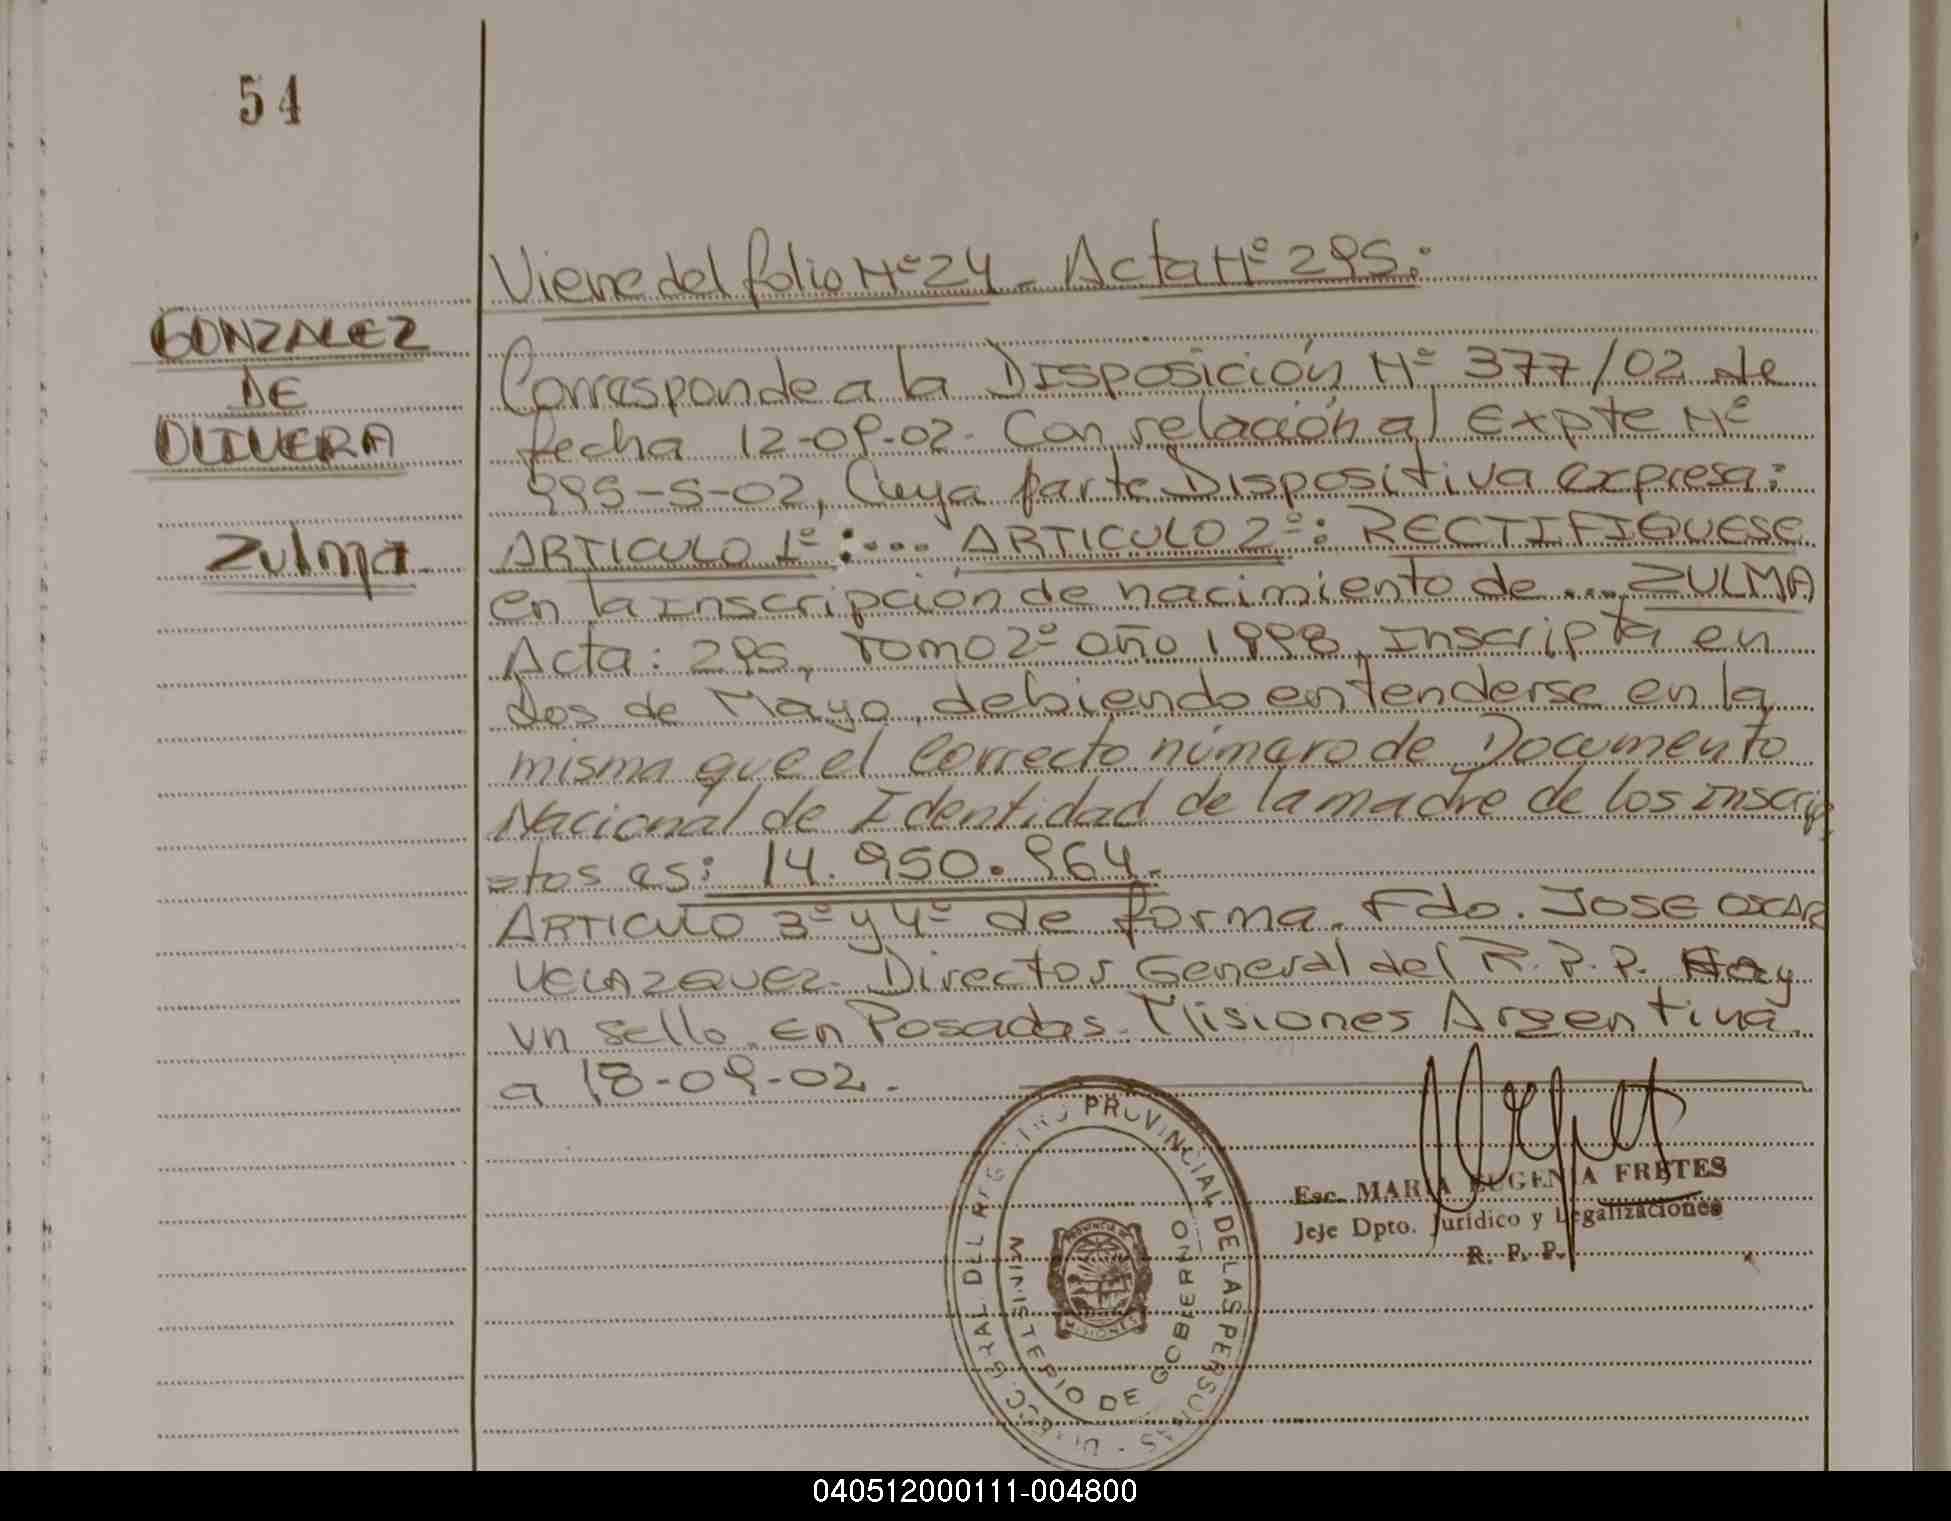 54
GONZALEZ
DE
OLIVERA
Zulma.
Viene del folio Nº 24 - Acta Nº 295:
Corresponde a la Disposición Nº 377/02 de
fecha 12-09-02. Con relación al Expte Nº
995-S-02, Cuya parte Dispositiva expresa:
ARTICULO 1º:... ARTICULO 2º: RECTIFIQUESE
en la inscripción de nacimiento de .... ZULMA
Acta: 295, Tomo 2º año 1998, Inscripta en
Dos de Mayo, debiendo entenderse en la
misma que el correcto número de Documento
Nacional de Identidad de la madre de los inscrip
=tos es: 14.950.964.
ARTICULO 3º y 4º de forma. Fdo. JOSE OSCAR
VELAZQUEZ. Director General del R.P.P. Hay
un sello. En Posadas. Misiones Argentina
a 18-09-02.-
DIRECC. GRAL. DEL REGISTRO PROVINCIAL DE LAS PERSONAS
MINISTERIO DE GOBIERNO
PROVINCIA DE
MISIONES
Esc. MARIA EUGENIA FRETES
Jefe Dpto. Jurídico y Legalizaciones
R. P. P.
040512000111-004800